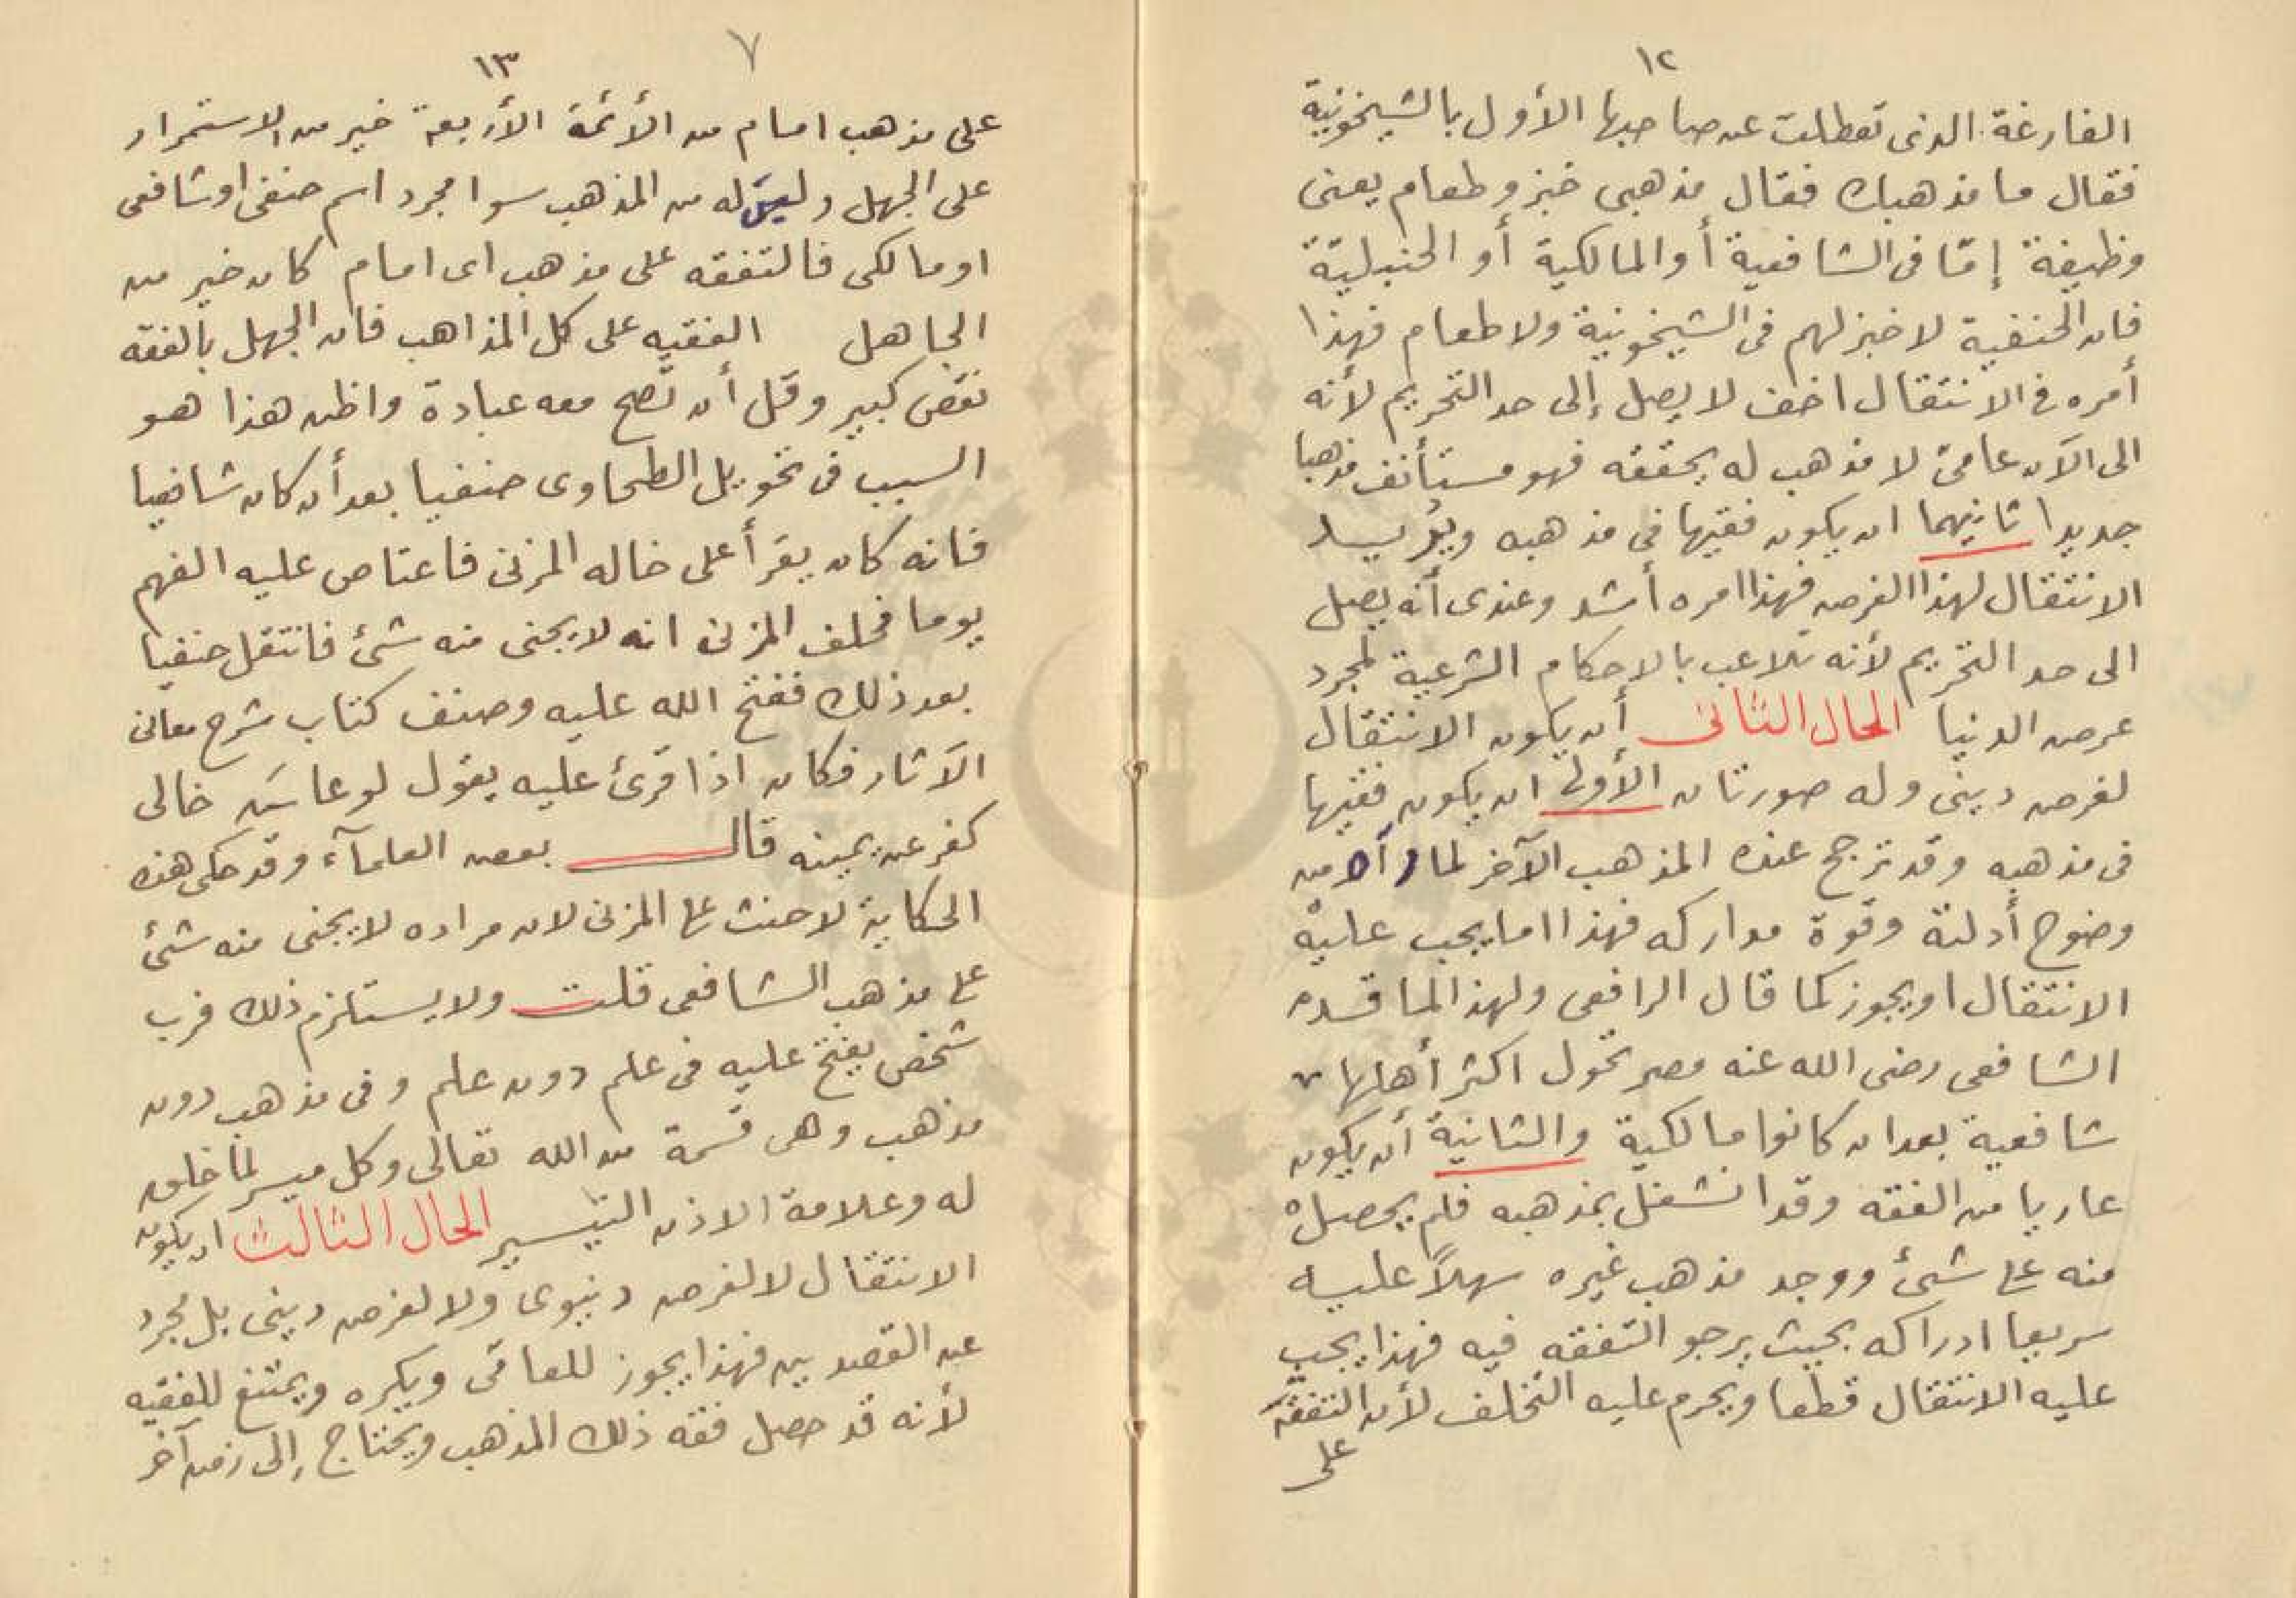 ١٢
الفارغة الذى تعطلت عن صاحبها الأول بالشيخونية
فقال ما مذهبك فقال مذهبى خبز وطعام يعنى
وظيفة إمّا فى الشافعية أو المالكية أو الحنبليّة
فان الحنفية لا خبز لهم فى الشيخونية ولا طعام فهذا
أمره فى الانتقال اخف لا يصل إلى حد التحريم لأنه
الى الآن عامىّ لا مذهب له يحققه فهو مستأنف مذهبا
جديدا ثانيهما ان يكون فقيها فى مذهبه ويريد
الانتقال لهذا الغرض فهذا امره أشد وعندى أنه يصل
الى حد التحريم لأنه تلاعب بالاحكام الشرعية لمجرد
عرض الدنيا الحال الثانى أن يكون الانتقال
لغرض دينى وله صورتان الأولى ان يكون فقيها
فى مذهبه وقد ترجح عنده المذهب الآخر لما رأه من
وضوح أدلتة وقوة مداركه فهذا اما يجب عليه
الانتقال او يجوز كما قال الرافعى ولهذا لما قدم
الشافعى رضى الله عنه مصر تحول اكثر أهلها
شافعية بعد ان كانوا مالكية والثانية أن يكون
عاريا من الفقه وقد انشغل بمذهبه فلم يحصل
منه على شئ ووجد مذهب غيره سهلاً عليه
سريعا ادراكه بحيث يرجو التفقه فيه فهذا يجب
عليه الانتقال قطعا ويحرم عليه التخلف لأن التفقّه
على
٧
١٣
على مذهب امام من الأئمة الأربعة خير من الاستمرار
على الجهل وليس له من المذهب سوا مجرد اسم حنفى او شافعى
او مالكى فالتفقه على مذهب اى امام كان خير من
الجاهل الفقيه على كل المذاهب فان الجهل بالفقه
نقص كبير وقل أن تصح معه عبادة واظن هذا هو
السبب فى تحويل الطحاوى حنفيا بعد أن كان شافعيا
فانه كان يقرأ على خاله المزنى فاعتاص عليه الفهم
يوما فحلف المزنى انه لا يجئ منه شئ فانتقل حنفيا
بعد ذلك ففتح الله عليه وصنف كتاب شرح معانى
الآثار فكان اذا قرئ عليه يقول لو عاش خالى
كفر عن يمينه قال بعض العلمآء وقد حكى هذه
الحكاية لا حنث على المزنى لان مراده لا يجئ منه شئ
على مذهب الشافعى قلت ولا يستلزم ذلك فرب
شخص يفتح عليه فى علم دون علم وفى مذهب دون
مذهب وهى قسمة من الله تعالى وكل ميسر لما خلق
له وعلامة الاذن التيسير الحال الثالث ان يكون
الانتقال لا لغرض دنيوى ولا لغرض دينى بل مجرد
عن القصدين فهذا يجوز للعامى ويكره ويمتنع للفقيه
لأنه قد حصل فقه ذلك المذهب ويحتاج إلى زمن آخر